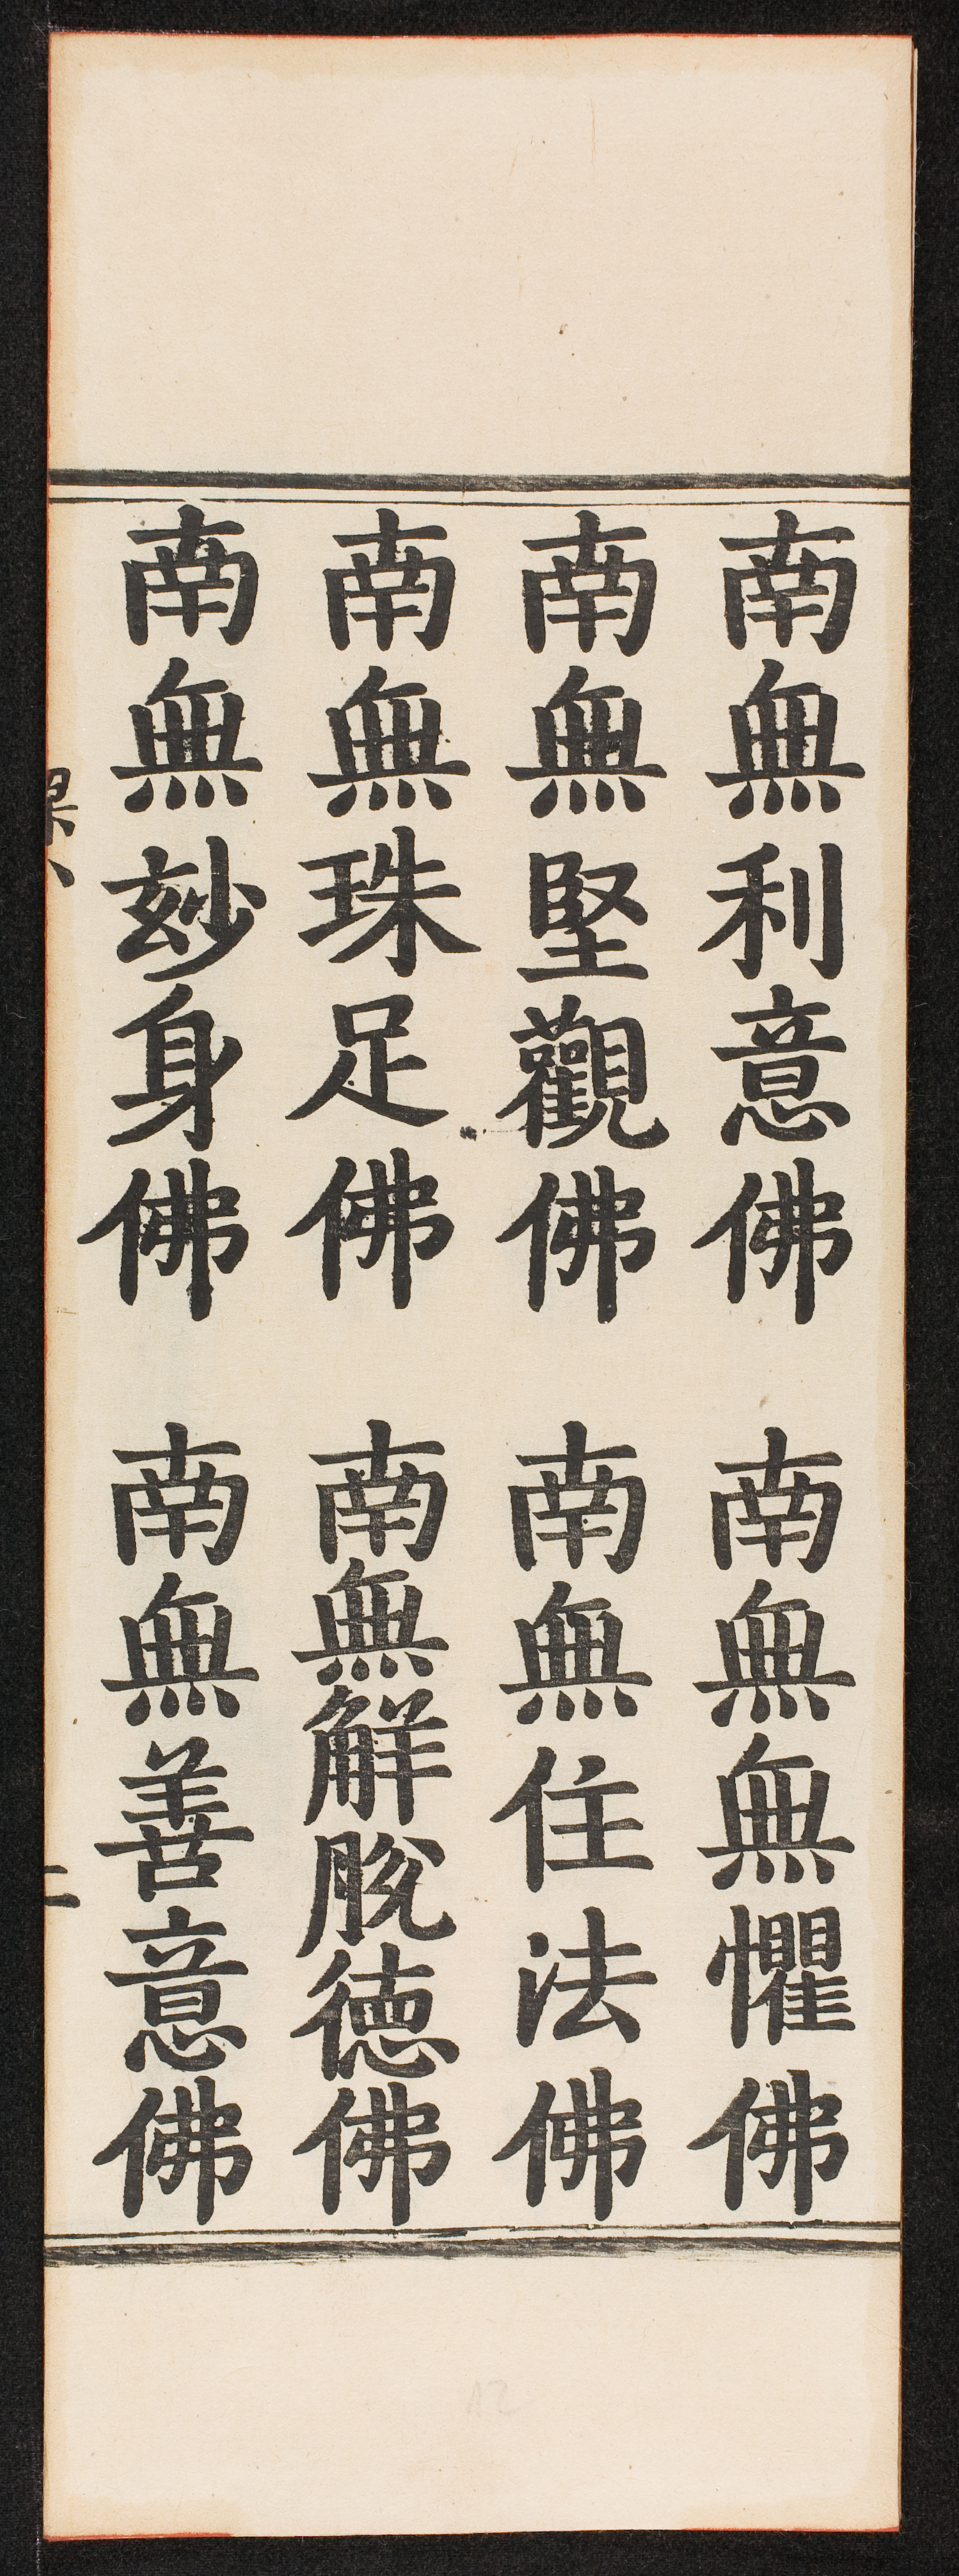 南無利意佛 南無無懼佛
南無堅觀佛 南無住法佛
南無珠足佛 南無解脫德佛
南無玅身佛 南無善意佛
二